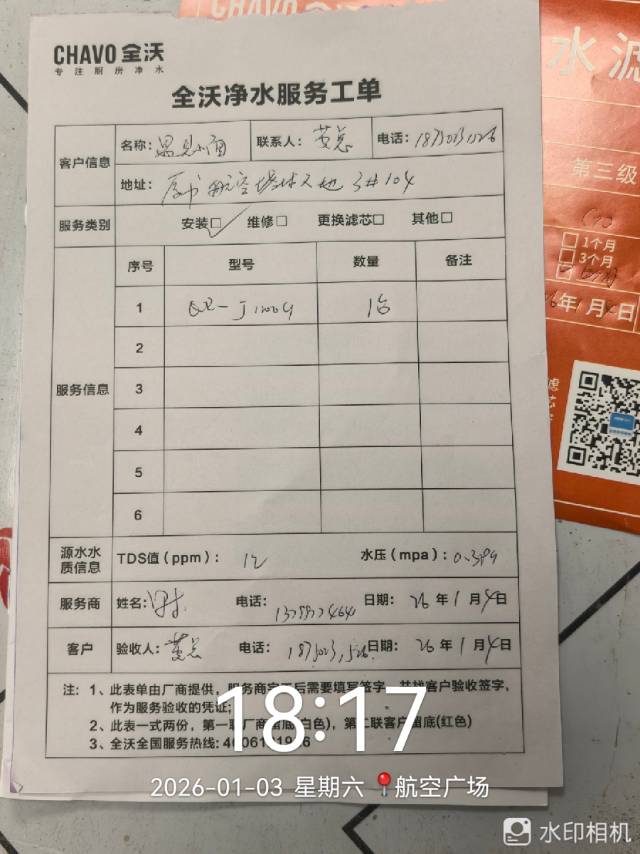 CHAVO 全沃
专注厨房净水
全沃净水服务工单
客户信息
名称: 遇见小面 联系人: 黄总 电话:
地址: 航空 3#104
服务类别 安装☑ 维修□ 更换滤芯□ 其他□
服务信息
序号 型号 数量 备注
1 1台
2
3
4
5
6
源水水质信息 TDS值(ppm): 12 水压(mpa): 0.3
服务商 姓名: 电话: 日期: 26 年 1 月 4 日
客户 验收人: 黄总 电话: 日期: 26 年 1 月 4 日
注: 1、此表单由厂商提供, 服务商完工后需要填写签字, 并找客户验收签字,
作为服务验收的凭证;
2、此表一式两份, 第一联厂商留底(白色), 第二联客户留底(红色)
3、全沃全国服务热线:
18:17
2026-01-03 星期六 航空广场
水印相机
CHAVO
水滤
第三级
□ 1个月
□ 3个月
年 1 月 4 日
滤芯